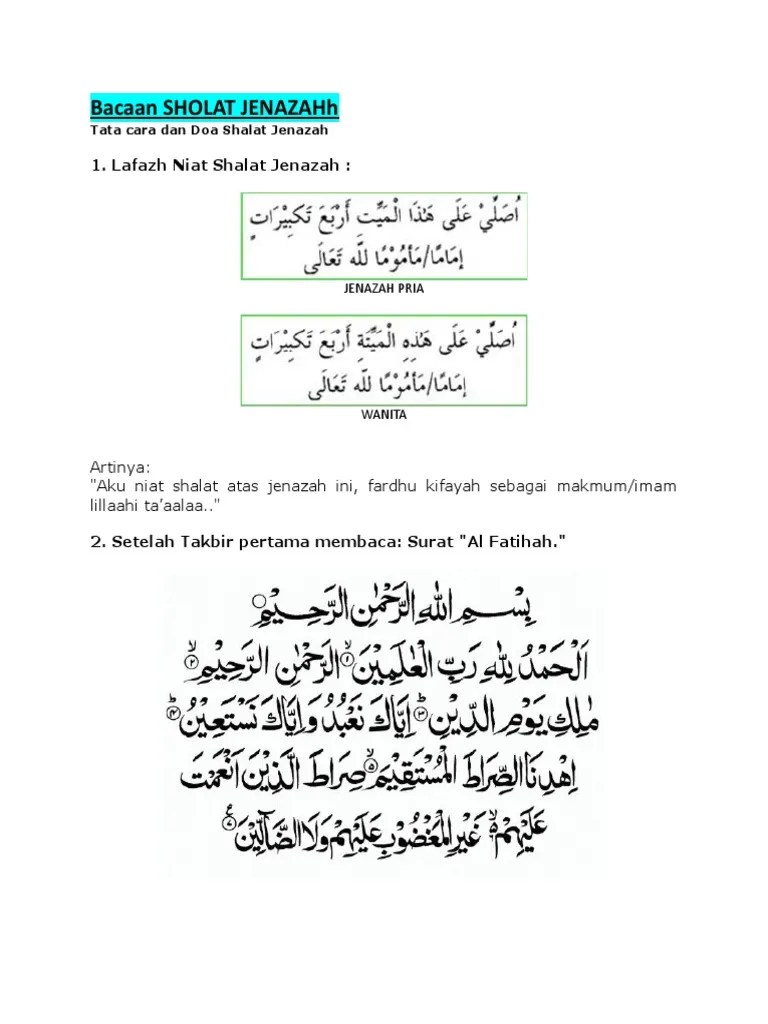 Bacaan SHOLAT JENAZAHh
Tata cara dan Doa Shalat Jenazah
1. Lafazh Niat Shalat Jenazah :
اُصَلِّيْ عَلَى هٰذَا الْمَيِّتِ أَرْبَعَ تَكْبِيْرَاتٍ
إِمَامًا/مَأْمُوْمًا للَّه تَعَالَى
JENAZAH PRIA
اُصَلِّيْ عَلَى هٰذِهِ الْمَيِّتَةِ أَرْبَعَ تَكْبِيْرَاتٍ
إِمَامًا/مَأْمُوْمًا للَّه تَعَالَى
WANITA
Artinya:
"Aku niat shalat atas jenazah ini, fardhu kifayah sebagai makmum/imam
lillaahi ta’aalaa.."
2. Setelah Takbir pertama membaca: Surat "Al Fatihah."
بِسْمِ اللهِ الرَّحْمٰنِ الرَّحِيْمِ
اَلْحَمْدُ لِلّٰهِ رَبِّ الْعٰلَمِيْنَۙ ١ الرَّحْمٰنِ الرَّحِيْمِۙ ٢
مٰلِكِ يَوْمِ الدِّيْنِۗ ٣ اِيَّاكَ نَعْبُدُ وَاِيَّاكَ نَسْتَعِيْنُۗ ٤
اِهْدِنَا الصِّرَاطَ الْمُسْتَقِيْمَۙ ٥ صِرَاطَ الَّذِيْنَ اَنْعَمْتَ
عَلَيْهِمْ ۙ٦ غَيْرِ الْمَغْضُوْبِ عَلَيْهِمْ وَلَا الضَّاۤلِّيْنَ ٧